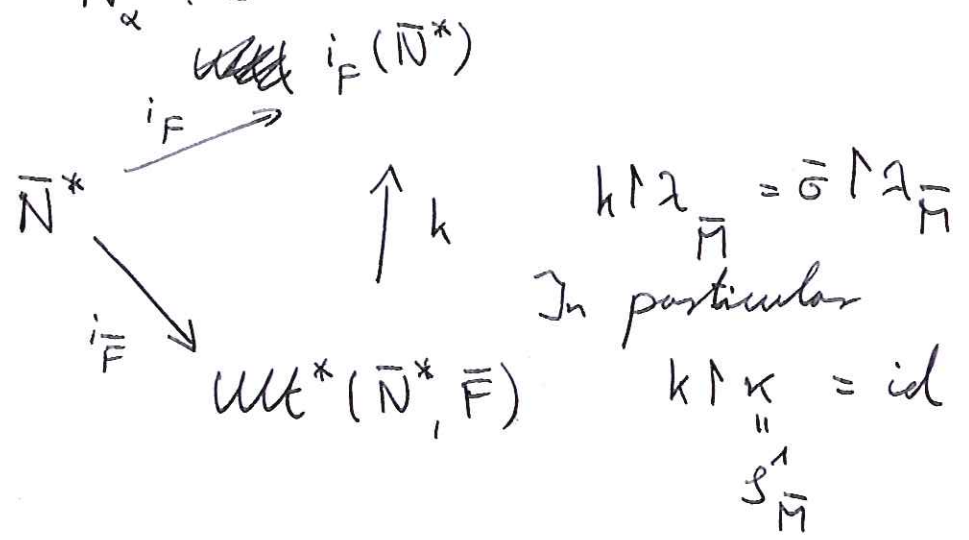 N_α
i_F (N̄*)
i_F
N̄*
k
k↾λ_M̄ = σ̄↾λ_M̄
In particular
i_F̄
Ult*(N̄*, F̄)
k↾κ = id
"
ρ¹_M̄